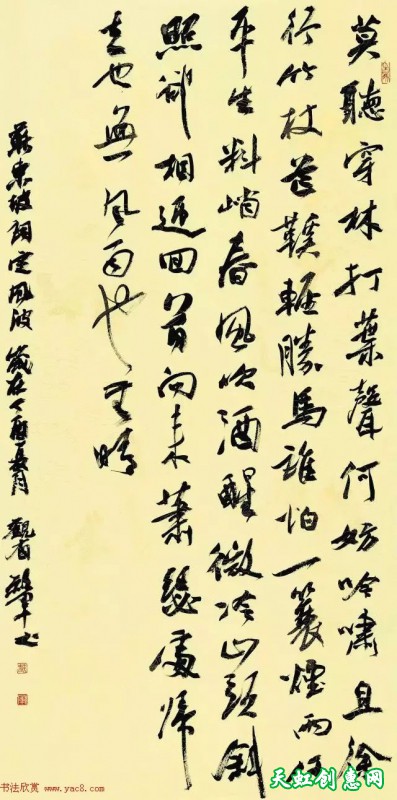 莫聽穿林打葉聲何妨吟嘯且徐
行竹杖芒鞋輕勝馬誰怕一蓑煙雨任
平生料峭春風吹酒醒微冷山頭斜
照卻相迎回首向來蕭瑟處歸
去也無風雨也无晴
蘇東坡詞定風波 歲在丁酉夏月
书法欣赏 www.yac8.com
天虹创意网